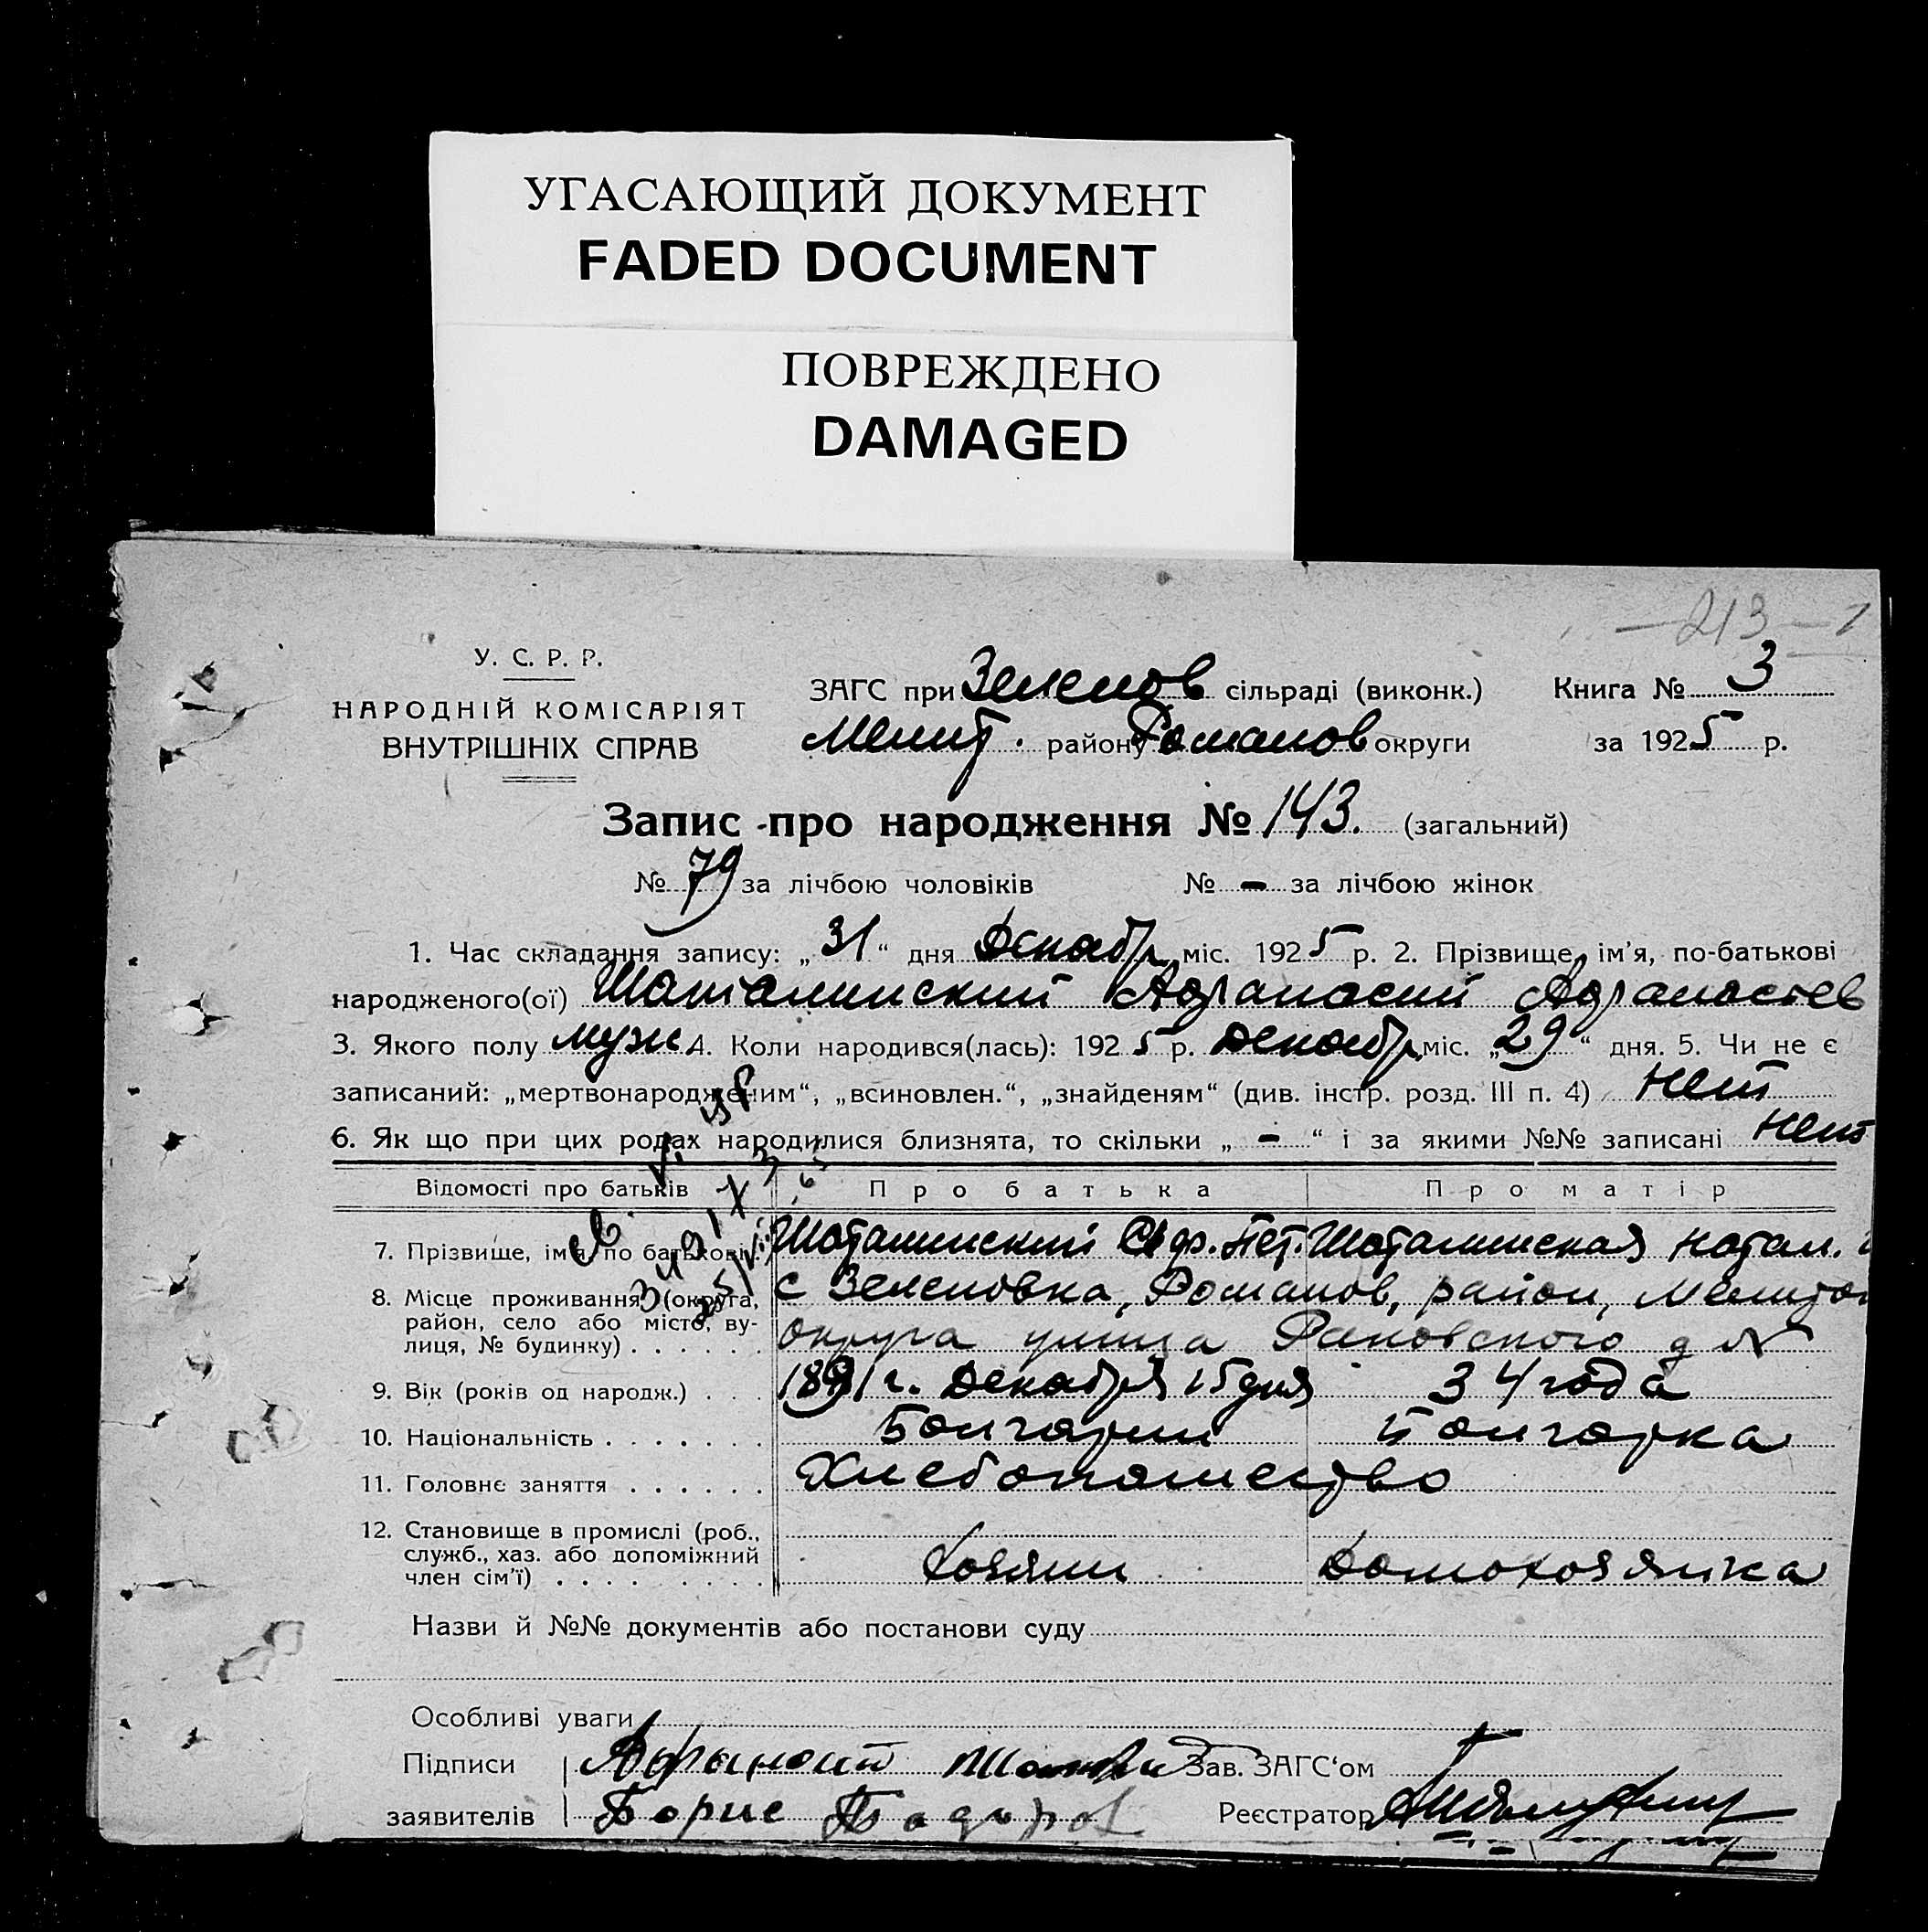 УГАСАЮЩИЙ ДОКУМЕНТ
FADED DOCUMENT
ПОВРЕЖДЕНО
DAMAGED
213
У. С. Р. Р.
НАРОДНІЙ КОМІСАРІЯТ
ВНУТРІШНІХ СПРАВ
ЗАГС при Зеленов сільраді (виконк.) Книга № 3
Мелит. району Романов округи за 1925 р.
Запис про народження № 143. (загальний)
№ 79 за лічбою чоловіків № - за лічбою жінок
1. Час складання запису: „31“ дня Декабр міс. 1925 р. 2. Прізвище, ім'я, по-батькові
народженого(ої) Шаталинский Афанасий Афанасьев
3. Якого полу муж. 4. Коли народився(лась): 1925 р. Декабр міс. „29“ дня. 5. Чи не є
записаний: „мертвонародженим“, „всиновлен.“, „знайденям“ (див. інстр. розд. III п. 4) нет
6. Як що при цих родах народилися близнята, то скільки „ - “ і за якими №№ записані нет
Відомості про батьків Про батька Про матір
7. Прізвище, імя, по батькові Шаталинский Аф. Пет. Шаталинская Натал.
8. Місце проживання (округа, район, село або місто, ву- лиця, № будинку) . . . . . . с Зеленовка, Романов, район, Мелитоп
округа улица Раковского д №
9. Вік (років од народж.) . . . 1891 г. Декабря 15 дня 34 года
10. Національність . . . . . . . Болгарин Болгарка
11. Головнє заняття . . . . . . Хлебопашество
12. Становище в промислі (роб., служб., хаз. або допоміжний член сім'ї) . . . . . . . . Хозяин Домохозяйка
Назви й №№ документів або постанови суду
Особливі уваги
Підписи Афанасий Зав. ЗАГС'ом
заявителів Борис Реєстратор